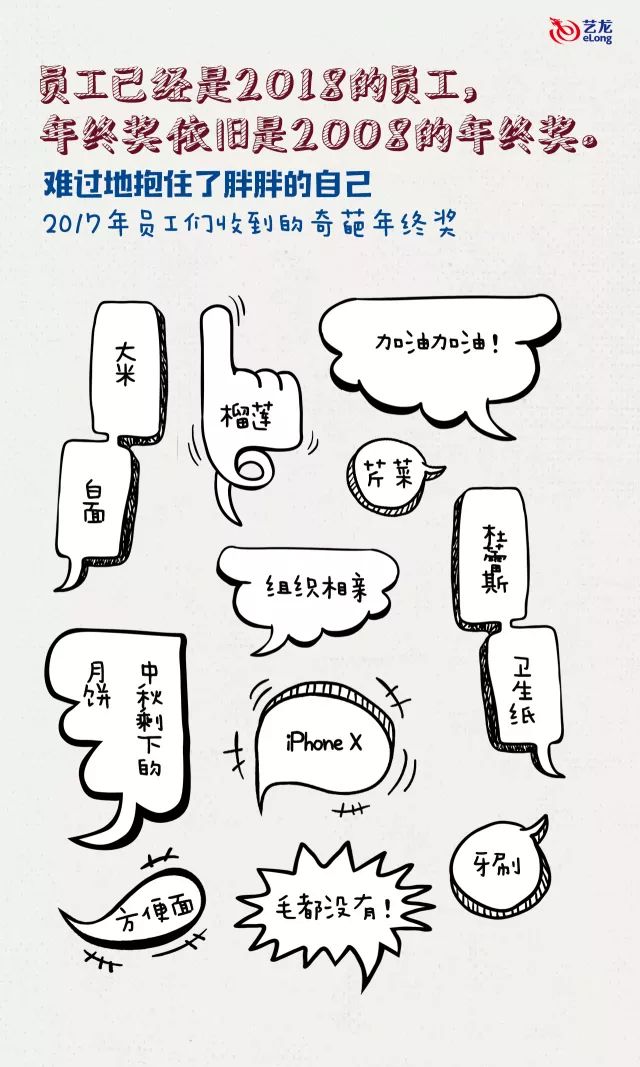 艺龙
eLong
员工已经是2018的员工,
年终奖依旧是2008的年终奖。
难过地抱住了胖胖的自己
2017年员工们收到的奇葩年终奖
大米
榴莲
加油加油!
白面
芹菜
杜蕾斯
组织相亲
卫生纸
中秋剩下的
月饼
iPhone X
牙刷
方便面
毛都没有!